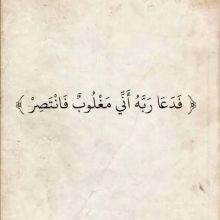 ﴿ فَدَعَا رَبَّهُ أَنِّي مَغْلُوبٌ فَانْتَصِرْ ﴾